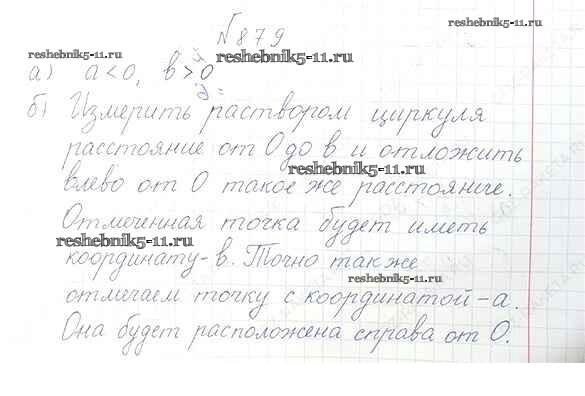 №879
reshebnik5-11.ru
reshebnik5-11.ru
reshebnik5-11.ru
а) a<0, в>0
б) Измерить раствором циркуля
расстояние от 0 до в и отложить
reshebnik5-11.ru
влево от 0 такое же расстояние.
Отмеченная точка будет иметь
reshebnik5-11.ru
координату -в. Точно так же
reshebnik5-11.ru
отмечаем точку с координатой -а.
Она будет расположена справа от 0.